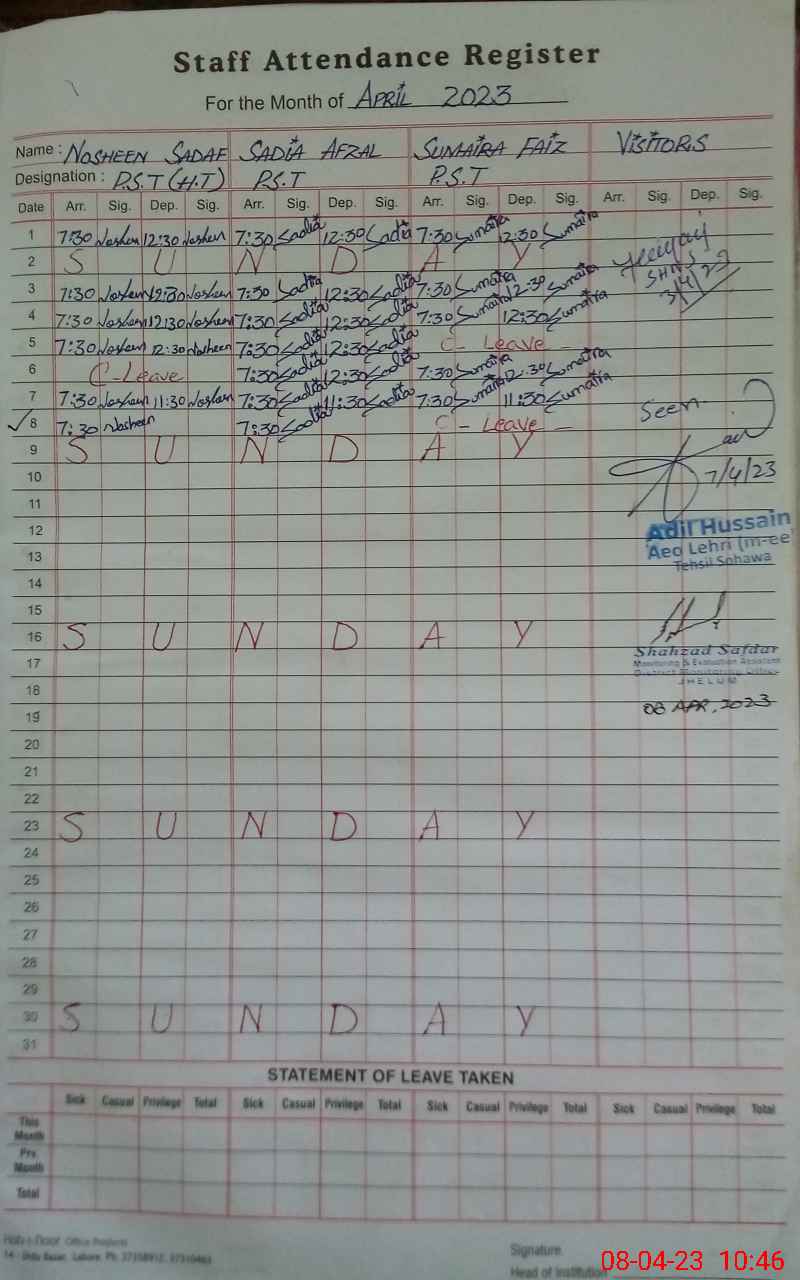 Staff Attendance Register
For the Month of APRIL 2023
Name : NOSHEEN SADAF SADIA AFZAL SUMAIRA FAIZ VISITORS
Designation : P.S.T (H.T) P.S.T P.S.T
Date Arr. Sig. Dep. Sig. Arr. Sig. Dep. Sig. Arr. Sig. Dep. Sig. Arr. Sig. Dep. Sig.
1 7:30 Nosheen 12:30 Nosheen 7:30 Sadia 12:30 Sadia 7:30 Sumaira 12:30 Sumaira
2 S U N D A Y
3 7:30 Nosheen 12:30 Nosheen 7:30 Sadia 12:30 Sadia 7:30 Sumaira 12:30 Sumaira
3/4/23
4 7:30 Nosheen 12:30 Nosheen 7:30 Sadia 12:30 Sadia 7:30 Sumaira 12:30 Sumaira
5 7:30 Nosheen 12:30 Nosheen 7:30 Sadia 12:30 Sadia C- Leave -
6 C-Leave 7:30 Sadia 12:30 Sadia 7:30 Sumaira 12:30 Sumaira
7 7:30 Nosheen 11:30 Nosheen 7:30 Sadia 11:30 Sadia 7:30 Sumaira 11:30 Sumaira
8 7:30 Nosheen 7:30 Sadia C- Leave - Seen
9 S U N D A Y
10 7/4/23
11
12 Adil Hussain
13 Aeo Lehri (m-ee)
Tehsil Sohawa
14
15
16 S U N D A Y
Shahzad Safdar
17 Monitoring & Evaluation Assistant
District Monitoring Office
JHELUM
18
19 08 APR, 2023
20
21
22
23 S U N D A Y
24
25
26
27
28
29
30 S U N D A Y
31
STATEMENT OF LEAVE TAKEN
Sick Casual Privilege Total Sick Casual Privilege Total Sick Casual Privilege Total Sick Casual Privilege Total
This
Month
Prv.
Month
Total
Office Products
14 - Urdu Bazar, Lahore. Ph: 37108912, 37310463
Signature
Head of Institution
08-04-23 10:46